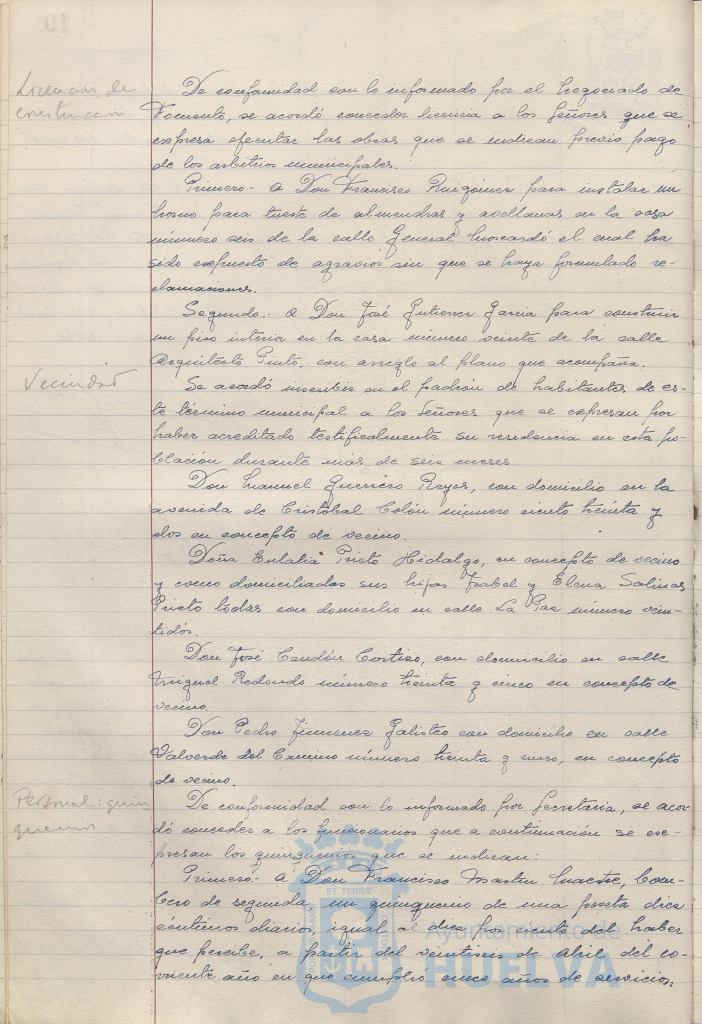 Licencias de
construcción
De conformidad con lo informado por el Negociado de
Fomento, se acordó conceder licencia a los Señores que se
expresa efectuar las obras que se indican previo pago
de los arbitrios municipales.
Primero.- A Don Francisco Ruigómez para instalar un
horno para tueste de almendras y avellanas en la casa
número seis de la calle General Moscardó el cual ha
sido expuesto de agravios sin que se haya formulado re-
clamaciones.
Segundo.- A Don José Gutierrez Garcia para construir
un piso interior en la casa número veinte de la calle
Arquitecto Pinto, con arreglo al plano que acompaña.
Vecindad
Se acordó inscribir en el padrón de habitantes de es-
te término municipal a los Señores que se expresan por
haber acreditado testificalmente su residencia en esta po-
blación durante más de seis meses.
Don Manuel Guerrero Reyes, con domicilio en la
avenida de Cristobal Colón número ciento treinta y
dos en concepto de vecino.
Doña Eulalia Prieto Hidalgo, en concepto de vecino
y como domiciliadas sus hijas Isabel y Elena Salinas
Prieto todas con domicilio en calle La Paz número vein-
tidós.
Don José Candón Cortiso, con domicilio en calle
Miguel Redondo número treinta y cinco en concepto de
vecino.
Don Pedro Jimenez Galisteo con domicilio en calle
Valverde del Camino número treinta y cinco, en concepto
de vecino.
Personal: quin
quenios
De conformidad con lo informado por Secretaria, se acor-
dó conceder a los funcionarios que a continuación se ex-
presan los quinquenios que se indican:
Primero.- A Don Francisco Martin Maestre, Bom-
bero de segunda, un quinquenio de una peseta diez
céntimos diarios, igual al diez por ciento del haber
que percibe, a partir del veintiseis de abril del co-
rriente año en que cumplió cinco años de servicios:
ET TERRÆ
Ayuntamiento de
HUELVA